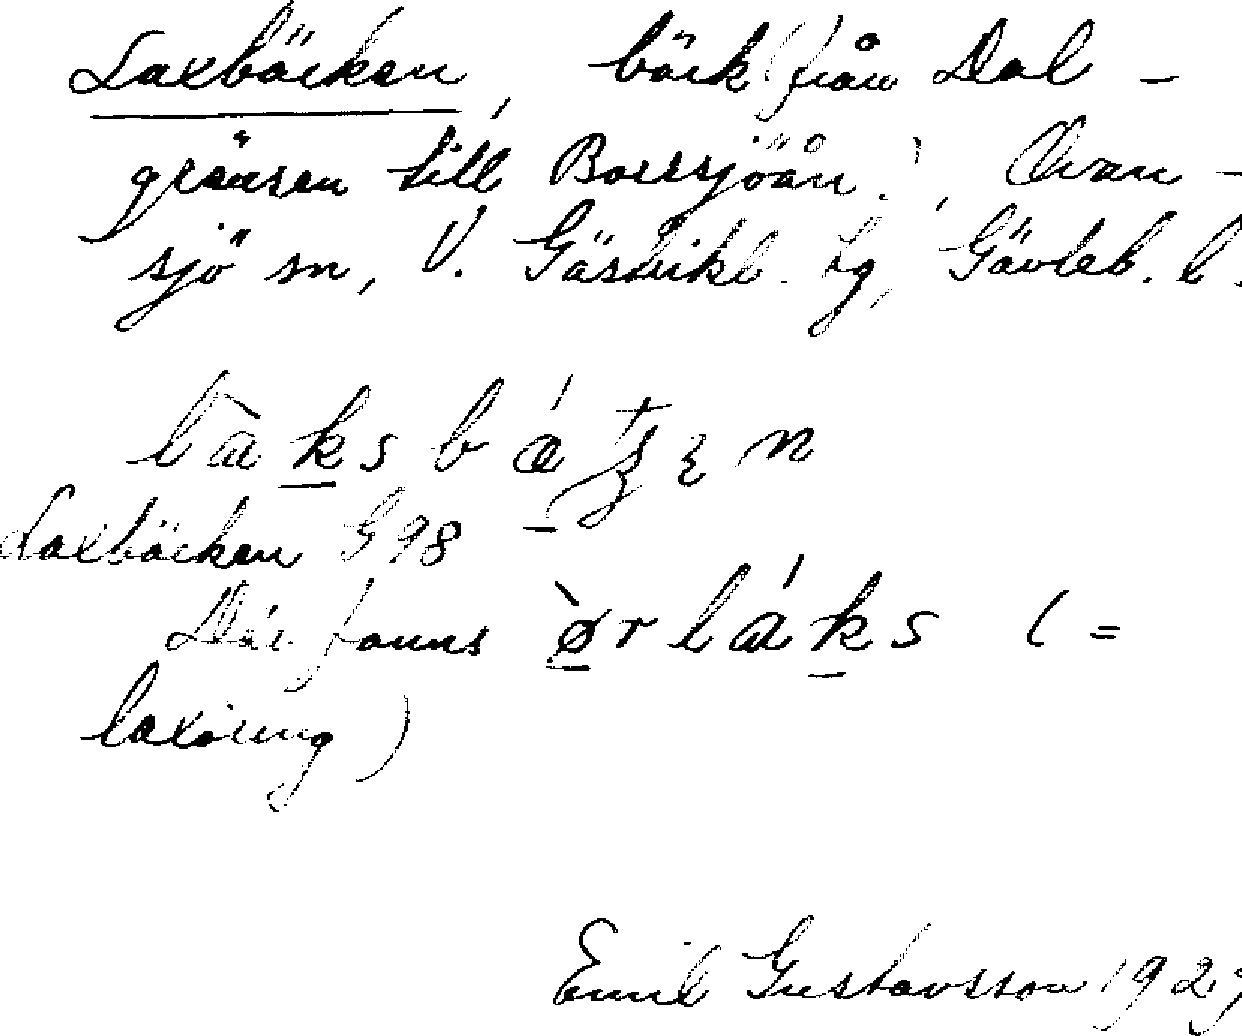 Laxbäcken, bäck (från Dal-
gränsen till Borrsjöån), Ovan-
sjö sn, V. Gästrikl. hg, Gävleb. l.
Laxbäcken G 98
Där fanns
laxöring)
Emil Gustavsson 192